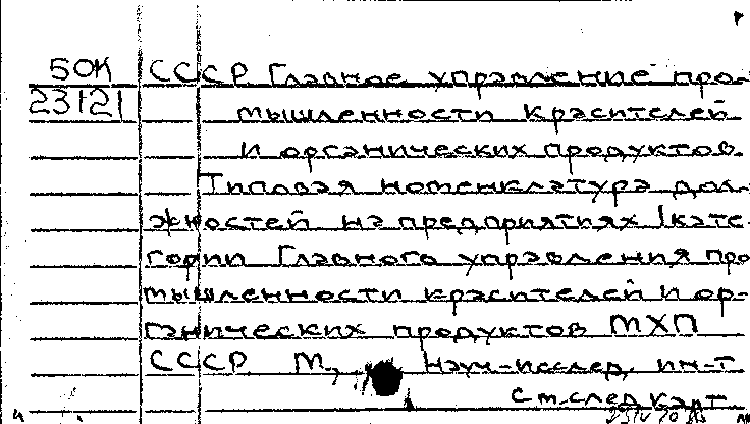 50К СССР Главное управление про-
23121 мышленности красителей
и органических продуктов.
Типовая номенклатура дол-
жностей на предприятиях I кате-
гории Главного управления про
мышленности красителей и ор-
ганических продуктов МХП
СССР М., Науч-исслед. ин-т
См. след карт